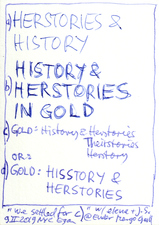 a) HERSTORIES &
HISTORY
HISTORY &
b) HERSTORIES
IN GOLD
c) GOLD: History & Herstories
Theirstories
Herstory
OR:
d) GOLD: HISSTORY &
HERSTORIES
"we settled for c)" w/ steve + J.S.
9 II 2019 NYC